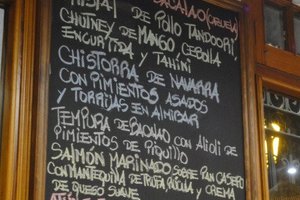 BACALAO (ABUELA)
DE POLLO TANDOORI,
CHUTNEY DE MANGO CEBOLLA
ENCURTIDA Y TAHINI
CHISTORRA DE NAVARRA
CON PIMIENTOS ASADOS
Y TORRIJAS EN ALMIBAR
TEMPURA DE BACALAO CON ALIOLI DE
PIMIENTOS DE PIQUILLO
SALMÓN MARINADO SOBRE PAN CASERO
CON MANTEQUILLA DE TRUFA RÚCULA Y CREMA
DE QUESO SUAVE